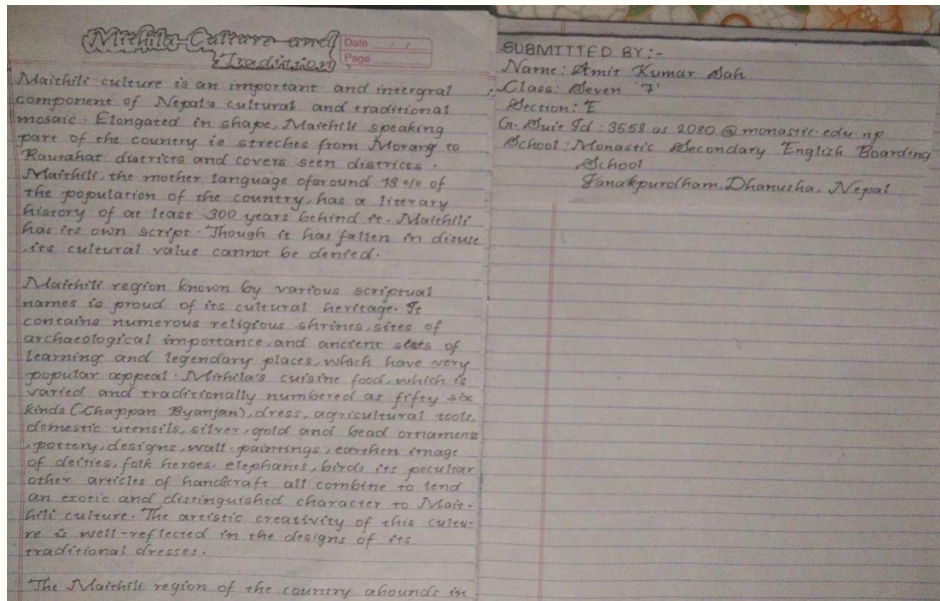 Mithila Culture and
Tradition
Date / /
Page
Maithili culture is an important and intergral
component of Nepal's cultural and traditional
mosaic. Elongated in shape, Maithili speaking
part of the country is streches from Morang to
Rautahat districts and covers seen districts.
Maithili, the mother language ofaround 18% of
the population of the country, has a literary
history of at least 300 years behind it. Maithili
has its own script. Though it has fallen in disuse
, its cultural value cannot be denied.
Maithili region known by various scriptual
names is proud of its cultural heritage. It
contains numerous religious shrines, sites of
archaeological importance, and ancient seats of
learning and legendary places, which have very
popular appeal. Mithila's cuisine food, which is
varied and traditionally numbered as fifty six
kinds (Chappan Byanjan), dress, agricultural tools,
domestic utensils, silver, gold and bead ornaments
, pottery, designs, wall-paintings, earthen image
of deities, folk heroes, elephants, birds its peculiar
other articles of handicraft all combine to lend
an exotic and distinguished character to Mait-
hili culture. The artistic creativity of this cultu-
re is well-reflected in the designs of its
traditional dresses.
The Maithili region of the country abounds in
SUBMITTED BY:-
Name: Amit Kumar Sah
Class: Seven '7'
Section: 'E'
G. Suit Id: 3558 as 2080 @ monastic.edu.np
School: Monastic Secondary English Boarding
School
Janakpurdham, Dhanusha, Nepal